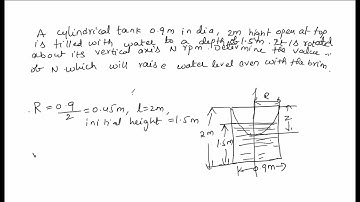 A cylindrical tank 0.9m in dia, 2m hight open at top
is filled with water to a depth of 1.5m. It is rotated
about its vertical axis N rpm. Determine the value
of N which will raise water level even with the brim.
R = 0.9/2 = 0.45m, l = 2m,
initial height = 1.5m
R
Z
2m
1.5m
0.9m